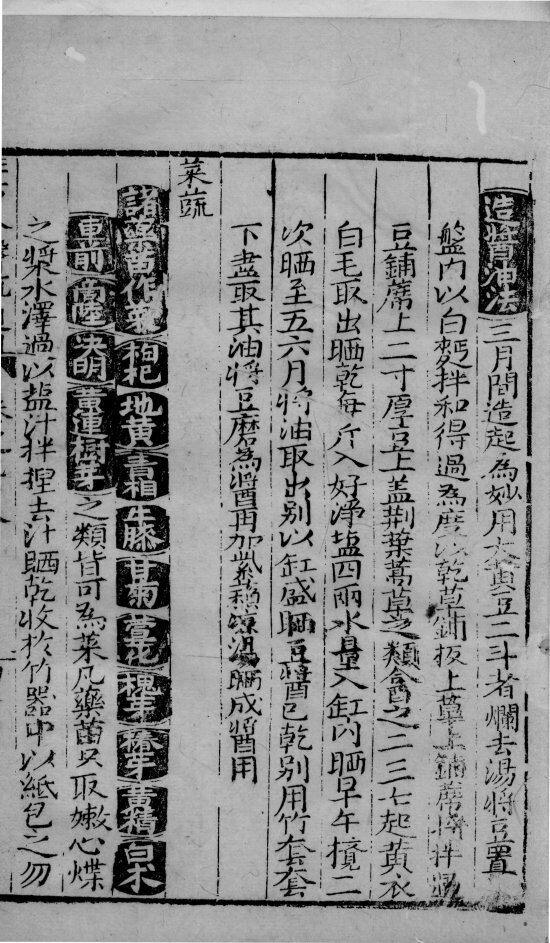 造醬油法三月間造起為妙用大黃豆二斗煮爛去湯將豆置
盤内以白麪拌和得過為度以乾草鋪板上草上鋪席將拌
豆鋪蓆上二寸厚豆上盖荆葉蒿草之類盦之二三七起黃衣
白毛取出晒乾每斤入好淨塩四兩水量入缸内晒早午攪二
次晒至五六月將油取出别以缸盛晒豆醬已乾别用竹套套
下盡取其油將豆磨為醬再加紫蘇凉湯晒成醬用
菜蔬
諸藥苗作菜枸杞地黃青相牛膝甘菊萱花槐芽椿芽黃精白朮
車前商陸决明黃連樹芽之類皆可為菜凡藥苗只取嫩心煠
之漿水澤過以塩汁拌捏去汁晒乾收於竹器中以紙包之勿